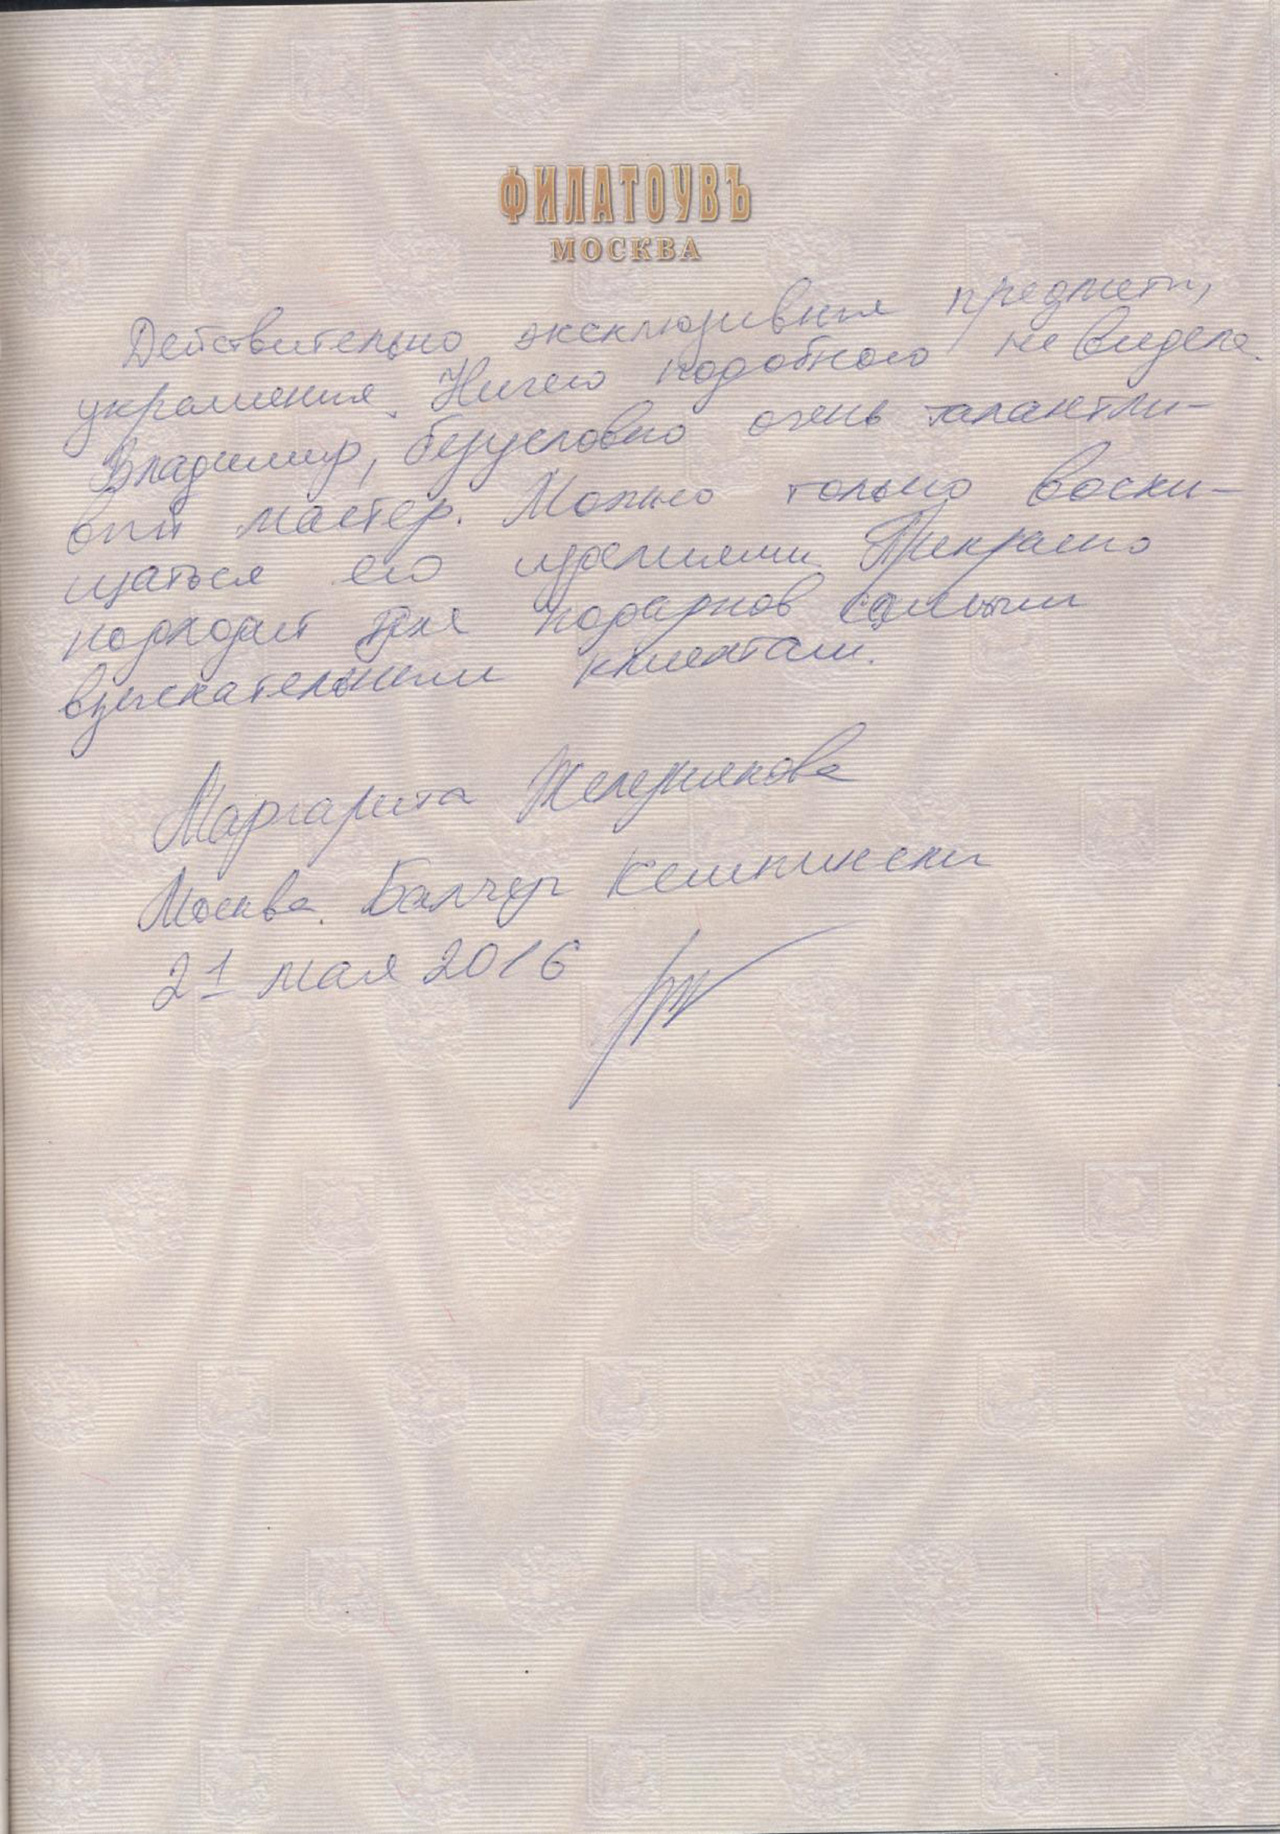 ФИЛАТОУВЪ
МОСКВА
Действительно эксклюзивные предметы,
украшения. Ничего подобного не видела.
Владимир, безусловно очень талантли-
вый мастер. Можно только восхи-
щаться его изделиями. Прекрасно
подходит для подарков самым
взыскательным клиентам.
Маргарита Железнякова
Москва. Балчуг Кемпински
21 мая 2016